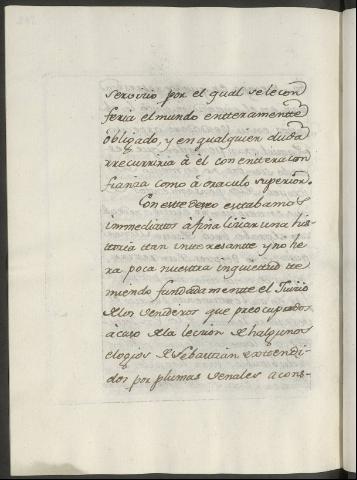 servicio por el qual sele con
feria el mundo entteramentte
obligado, y en qualquier duda
rrecurriria à èl con enttera con
fianza como à oraculo superior.
Con este deseo esttabamos
immediattos à finalizar una his
ttoria ttan intteresantte y no he
ra poca nuestra inquiettud tte
miendo fundadamentte el Juicio
delos venideros que preocupados
àcaso dela leccion de halgunos
elogios de Sebasttian exttendi-
dos por plumas venales acons-